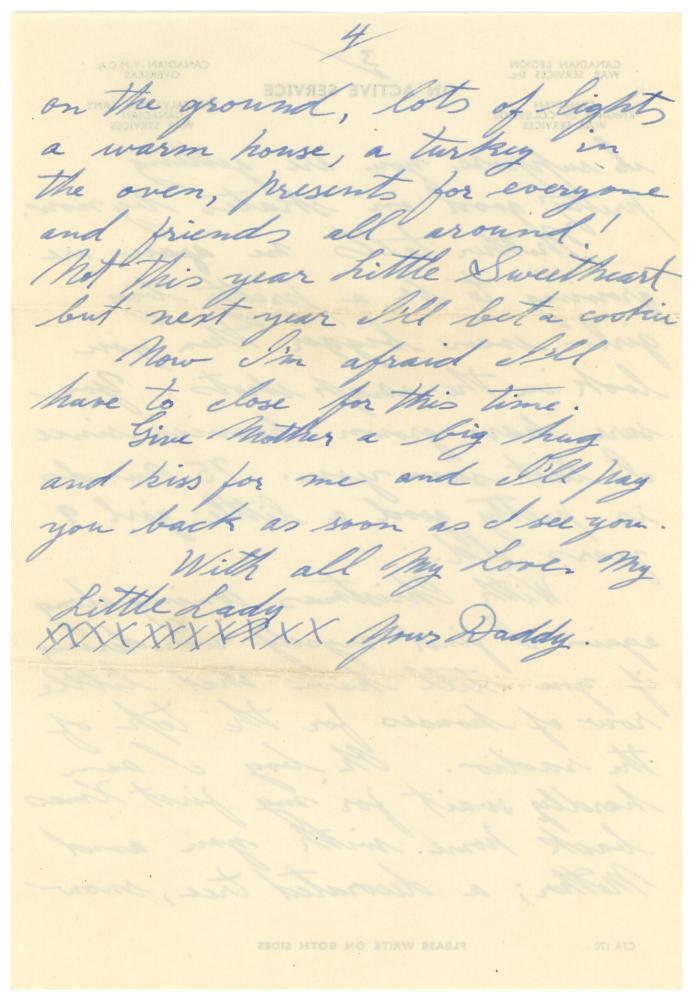 4
on the ground, lots of lights
a warm house, a turkey in
the oven, presents for everyone
and friends all around!
Not this year Little Sweetheart
but next year I'll bet a cookie
Now I'm afraid I'll
have to close for this time.
Give Mother a big hug
and kiss for me and I'll pay
you back as soon as I see you.
With all My Love. My
Little Lady
XXXXXXXXXXX Your Daddy.